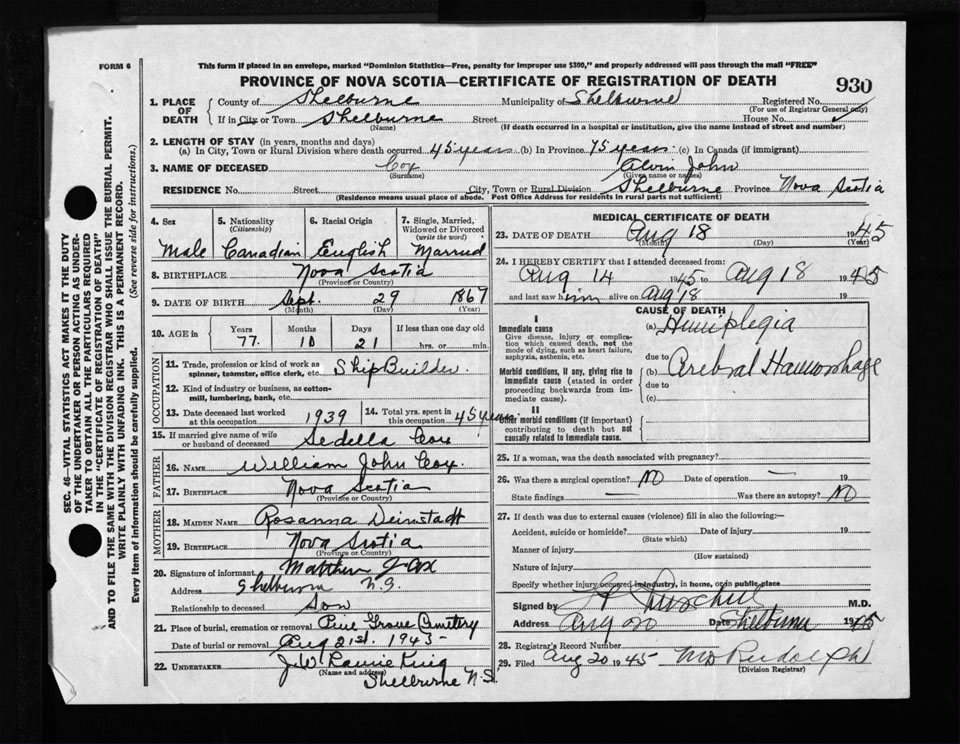 FORM 6
This form if placed in an envelope, marked "Dominion Statistics—Free, penalty for improper use $300," and properly addressed will pass through the mail "FREE"
PROVINCE OF NOVA SCOTIA—CERTIFICATE OF REGISTRATION OF DEATH
930
1. PLACE OF DEATH { County of Shelburne Municipality of Shelburne Registered No.
(For use of Registrar General only)
If in City or Town Shelburne Street House No.
(Name) (If death occurred in a hospital or institution, give the name instead of street and number)
2. LENGTH OF STAY (in years, months and days)
(a) In City, Town or Rural Division where death occurred 45 years (b) In Province 75 years (c) In Canada (if immigrant)
3. NAME OF DECEASED Cox Alvin John
(Surname) (Given name or names)
RESIDENCE No. Street City, Town or Rural Division Shelburne Province Nova Scotia
(Residence means usual place of abode. Post Office Address for residents in rural parts not sufficient)
SEC. 46—VITAL STATISTICS ACT MAKES IT THE DUTY
OF THE UNDERTAKER OR PERSON ACTING AS UNDER-
TAKER TO OBTAIN ALL THE PARTICULARS REQUIRED
IN THE "CERTIFICATE OF REGISTRATION OF DEATH"
AND TO FILE THE SAME WITH THE DIVISION REGISTRAR WHO SHALL ISSUE THE BURIAL PERMIT.
WRITE PLAINLY WITH UNFADING INK. THIS IS A PERMANENT RECORD.
Every item of information should be carefully supplied. (See reverse side for instructions.)
4. Sex 5. Nationality 6. Racial Origin 7. Single, Married,
(Citizenship) Widowed or Divorced
(write the word)
Male Canadian English Married
8. BIRTHPLACE Nova Scotia
(Province or Country)
9. DATE OF BIRTH Sept. 29 1867
(Month) (Day) (Year)
10. AGE in { Years Months Days If less than one day old
77 10 21 hrs. or min.
OCCUPATION
11. Trade, profession or kind of work as
spinner, teamster, office clerk, etc. Ship Builder.
12. Kind of industry or business, as cotton-
mill, lumbering, bank, etc.
13. Date deceased last worked
at this occupation 1939
14. Total yrs. spent in
this occupation 45 years
15. If married give name of wife
or husband of deceased Sedella Cox
FATHER
16. NAME William John Cox.
17. BIRTHPLACE Nova Scotia
(Province or Country)
MOTHER
18. MAIDEN NAME Rosanna
19. BIRTHPLACE Nova Scotia
(Province or Country)
20. Signature of informant Matthew J Cox
Address Shelburne N.S.
Relationship to deceased Son
21. Place of burial, cremation or removal Pine Grove Cemetery
Date of burial or removal Aug 21st. 1945
22. UNDERTAKER J.W. King
(Name and address)
Shelburne N.S.
MEDICAL CERTIFICATE OF DEATH
23. DATE OF DEATH Aug 18 1945
(Month) (Day) (Year)
24. I HEREBY CERTIFY that I attended deceased from:
Aug 14 1945 to Aug 18 1945
and last saw him alive on Aug 18 19
CAUSE OF DEATH
I
Immediate cause (a) Hemiplegia
Give disease, injury or complica-
tion which caused death, not the
mode of dying, such as heart failure,
asphyxia, asthenia, etc.
due to
Morbid conditions, if any, giving rise to (b) Cerebral Haemorrhage
immediate cause (stated in order due to
proceeding backwards from im-
mediate cause). (c)
II
Other morbid conditions (if important)
contributing to death but not
causally related to immediate cause.
25. If a woman, was the death associated with pregnancy?
26. Was there a surgical operation? No Date of operation — 19
State findings — Was there an autopsy? No
27. If death was due to external causes (violence) fill in also the following:—
Accident, suicide or homicide? Date of injury 19
(State which)
Manner of injury
(How sustained)
Nature of injury
Specify whether injury occurred in industry, in home, or in public place
Signed by M.D.
Address Aug 20 Date Shelburne 1945
28. Registrar's Record Number
29. Filed Aug 20 1945 Rudolph
(Division Registrar)